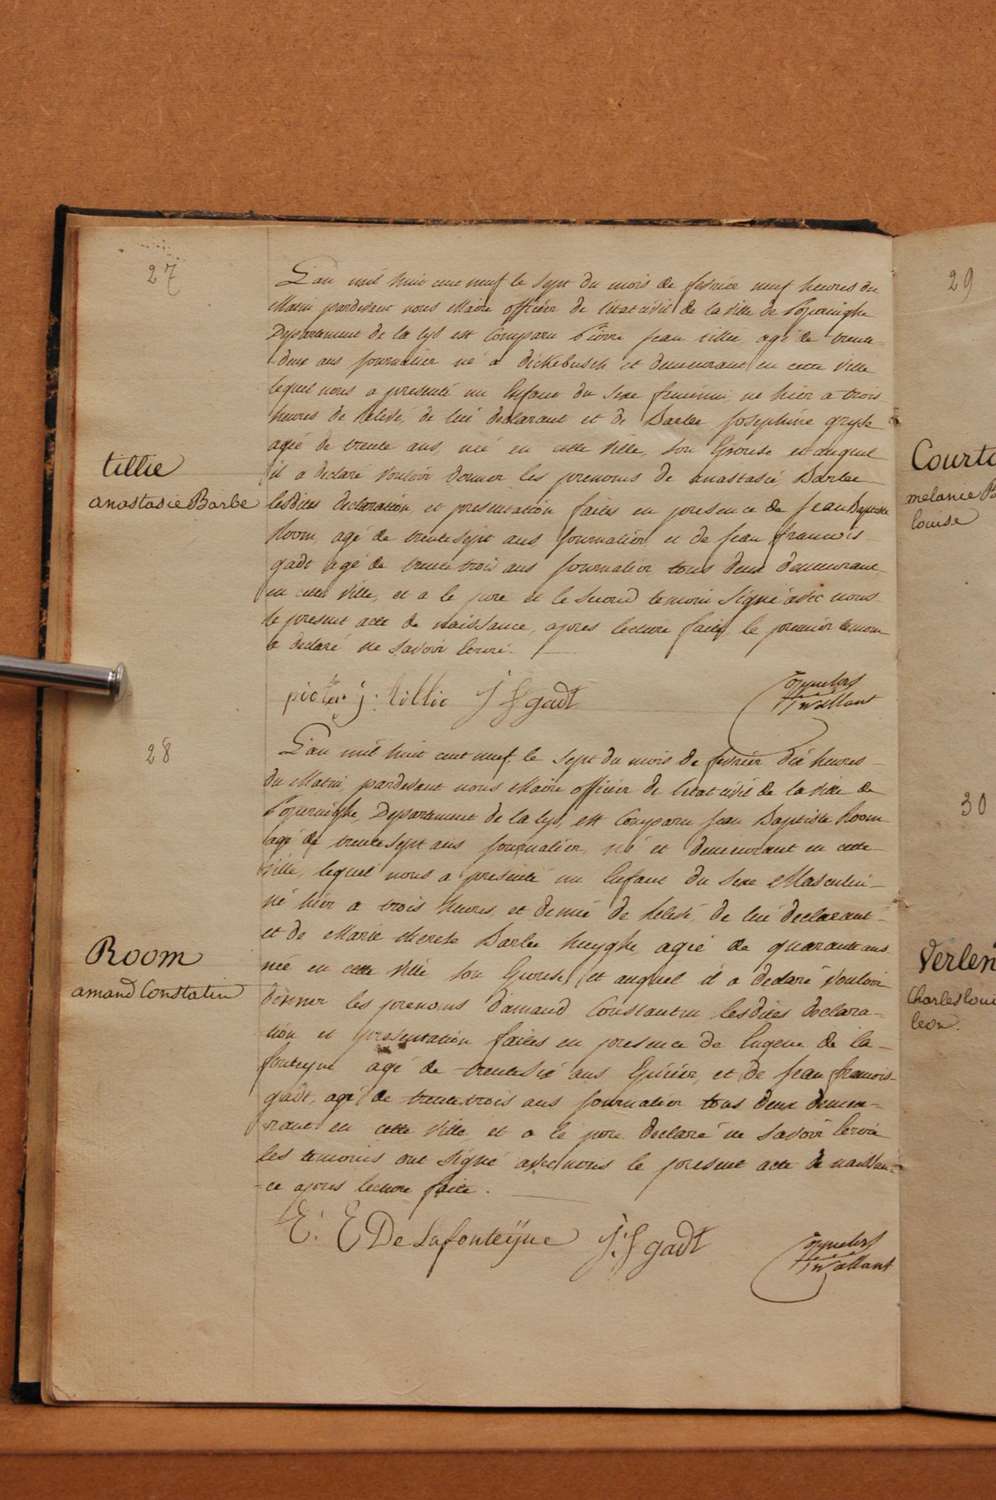 27
L'an mil huit cent neuf le sept du mois de fevrier neuf heures du
Matin pardevant nous Maire officier de l'état civil de la ville de Poperinghe
Departement de la Lys est Comparu Pierre Jean tillie agé de trente
deux ans journalier né a Dickebusch et demeurant en cette ville
lequel nous a presenté un Enfant du Sexe feminin né hier a trois
heures de relevé, de lui declarant et de Barbe Josephine
agée de trente ans, née en cette ville, son Epouse et auquel
il a declaré vouloir donner les prenoms de anastasie Barbe
lesdites declaration et presentation faites en presence de Jean Baptiste
Room, agé de trente sept ans journalier et de Jean francois
gadt agé de trente trois ans journalier tous deux demeurant
en cette ville, et a le pere et le second temoin Signé avec nous
le present acte de naissance, apres lecture faite, le premier temoin
a declaré ne savoir ecrire.
tillie
anastasie Barbe
pieter j: tillie J f gadt
28
L'an mil huit cent neuf le sept du mois de fevrier dix heures
du Matin pardevant nous Maire officier de l'état civil de la ville de
Poperinghe, Departement de la Lys, est Comparu Jean Baptiste Room
agé de trente sept ans journalier, né et demeurant en cette
ville, lequel nous a presenté un Enfant du Sexe Masculin
né hier a trois heures et demie de relevé de lui declarant
et de Marie therese Barbe huyghe agée de quarante ans
née en cette ville son Epouse, et auquel il a declaré vouloir
donner les prenoms d'amand Constantin lesdites declara-
tion et presentation faites en presence de Eugene de la
fonteyne agé de trente six ans Epicier, et de Jean francois
gadt, agé de trente trois ans journalier tous deux demeu-
rant en cette ville et a le pere declaré ne savoir ecrire
les temoins ont signé avec nous le present acte de naissan-
ce apres lecture faite.
Room
amand Constatin
E: E De Lafonteijne J: f gadt
29
Courto
melanie B
louise
30
Verlen
Charles loui
leon.